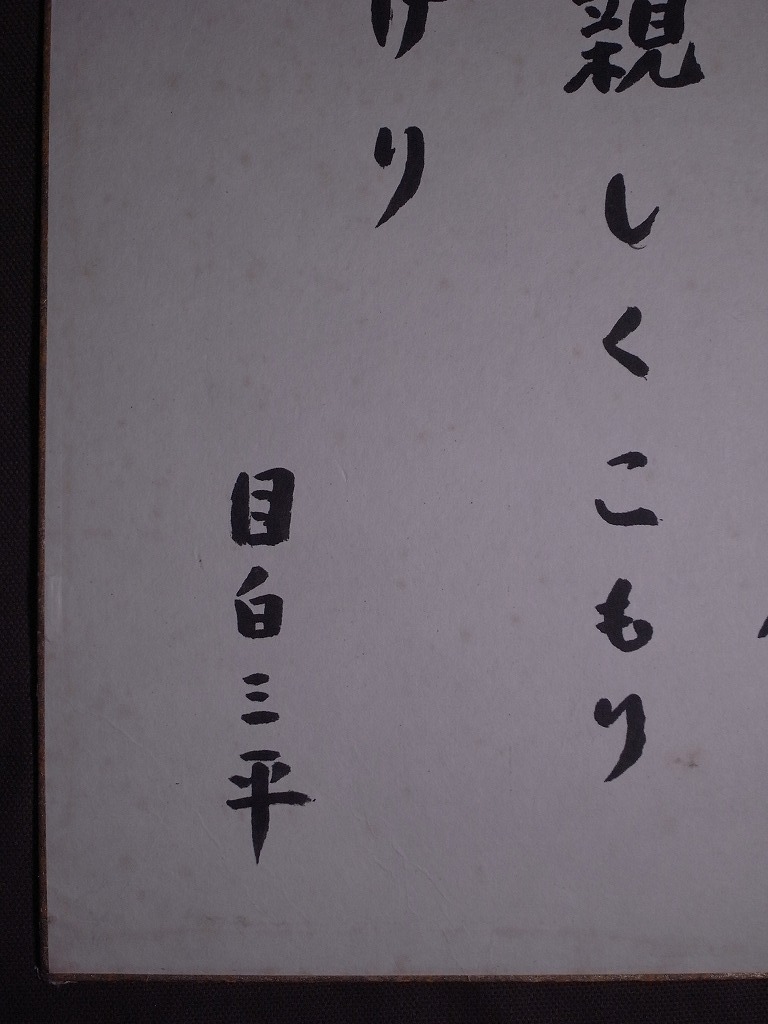 親しくこもり
けり
目白三平